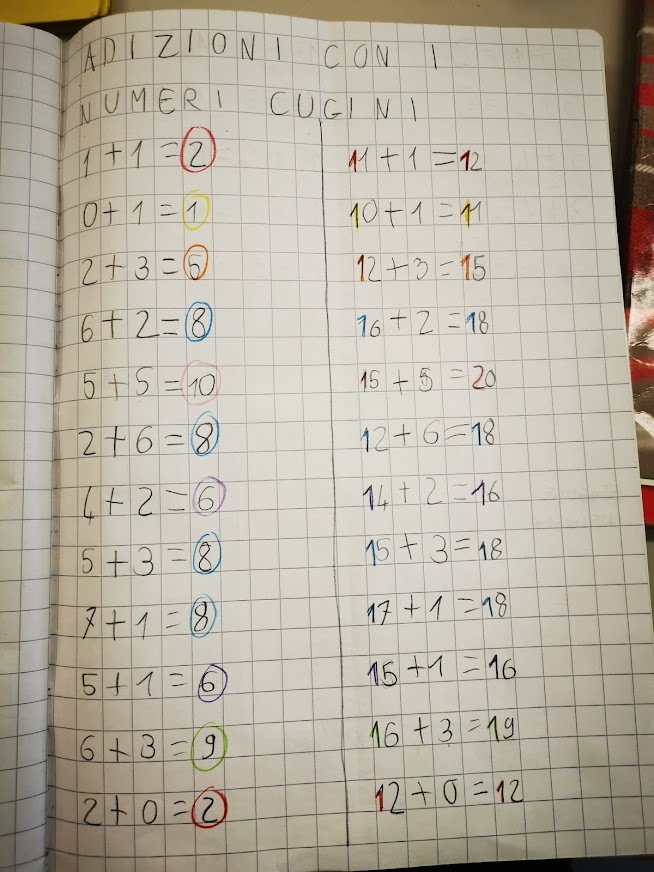 ADIZIONI CON I
NUMERI CUGINI
1+1=2 11+1=12
0+1=1 10+1=11
2+3=5 12+3=15
6+2=8 16+2=18
5+5=10 15+5=20
2+6=8 12+6=18
4+2=6 14+2=16
5+3=8 15+3=18
7+1=8 17+1=18
5+1=6 15+1=16
6+3=9 16+3=19
2+0=2 12+0=12